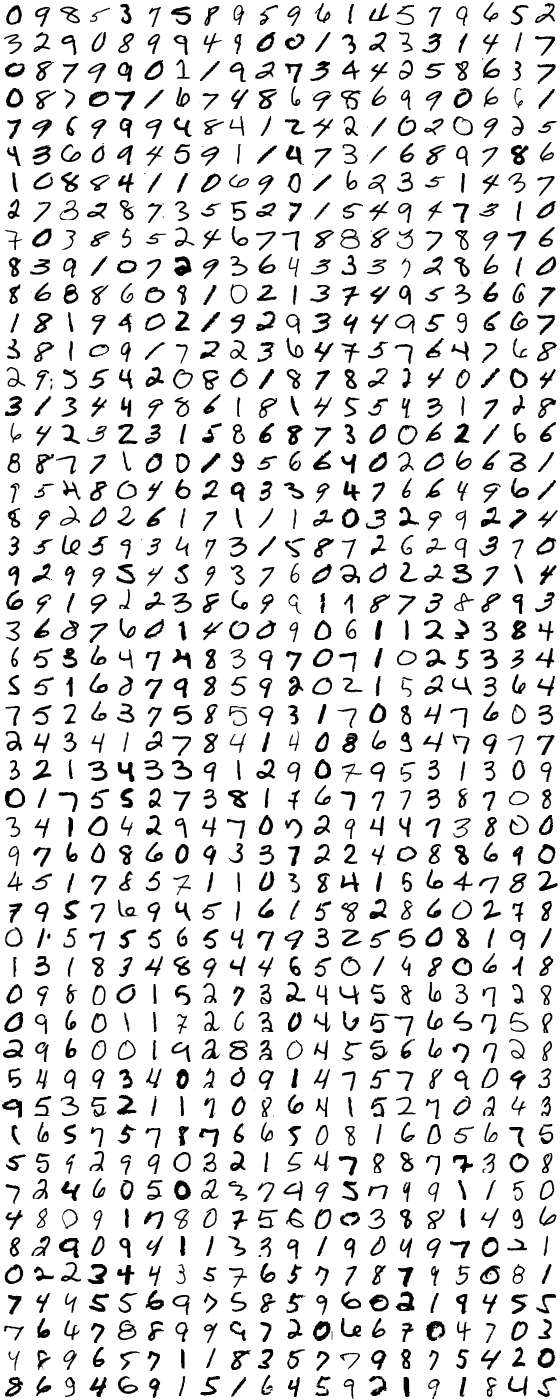 0 9 8 5 3 7 5 8 9 5 9 6 1 4 5 7 9 6 5 2
3 2 9 0 8 9 9 4 9 0 0 1 3 2 3 3 1 4 1 7
0 8 7 9 9 0 1 1 9 2 7 3 4 4 2 5 8 6 3 7
0 8 7 0 7 1 6 7 4 8 6 9 8 6 9 9 0 6 6 1
7 9 6 9 9 9 4 8 4 1 2 4 2 1 0 2 0 9 2 5
4 3 6 0 9 4 5 9 1 1 4 7 3 1 6 8 9 7 8 6
1 0 8 8 4 1 1 0 6 9 0 1 6 2 3 5 1 4 3 7
2 7 3 2 8 7 3 5 5 2 7 1 5 4 9 4 7 3 1 0
7 0 3 8 5 5 2 4 6 7 7 8 8 8 3 7 8 9 7 6
8 3 9 1 0 7 2 9 3 6 4 3 3 3 7 2 8 6 1 0
8 6 8 8 6 0 8 1 0 2 1 3 7 4 9 5 3 6 6 7
1 8 1 9 4 0 2 1 9 2 9 3 4 4 0 5 9 6 6 7
3 8 1 0 9 1 7 2 2 3 6 4 7 5 7 6 4 7 6 8
2 9 5 5 4 2 0 8 0 1 8 7 8 2 2 4 0 1 0 4
3 1 3 4 4 9 8 6 1 8 1 4 5 5 4 3 1 7 2 8
6 4 2 3 2 3 1 5 8 6 8 7 3 0 0 6 2 1 6 6
8 8 7 7 1 0 0 1 9 5 6 6 4 0 2 0 6 6 3 1
9 5 4 8 0 4 6 2 9 3 3 9 4 7 6 6 4 9 6 1
8 9 2 0 2 6 1 7 1 1 1 2 0 3 2 9 9 2 7 4
3 5 6 5 9 3 4 7 3 1 5 8 7 2 6 2 9 3 7 0
9 2 9 9 5 4 5 9 3 7 6 0 2 0 2 2 3 7 1 4
6 9 1 9 2 2 3 8 6 9 9 1 1 8 7 3 8 8 9 3
3 6 8 7 6 0 1 4 0 0 9 0 6 1 1 2 3 3 8 4
6 5 3 6 4 7 4 8 3 9 7 0 7 1 0 2 5 3 3 4
5 5 1 6 8 7 9 8 5 9 2 0 2 1 5 2 4 3 6 4
7 5 2 6 3 7 5 8 5 9 3 1 7 0 8 4 7 6 0 3
2 4 3 4 1 2 7 8 4 1 4 0 8 6 9 4 7 9 7 7
3 2 1 3 4 3 3 9 1 2 9 0 7 9 5 3 1 3 0 9
0 1 7 5 5 2 7 3 8 1 7 6 7 7 7 3 8 7 0 8
3 4 1 0 4 2 9 4 7 0 7 2 9 4 4 7 3 8 0 0
9 7 6 0 8 6 0 9 3 3 7 2 2 4 0 8 8 6 9 0
4 5 1 7 8 5 7 1 1 0 3 8 4 1 5 6 4 7 8 2
7 9 5 7 6 9 4 5 1 6 1 5 8 2 8 6 0 2 7 8
0 1 5 7 5 5 6 5 4 7 9 3 2 5 5 0 8 1 9 1
1 3 1 8 3 4 8 9 4 4 6 5 0 1 4 8 0 6 1 8
0 9 8 0 0 1 5 2 7 3 2 4 4 5 8 6 3 7 2 8
0 9 6 0 1 1 7 2 6 3 0 4 6 5 7 6 5 7 5 8
2 9 6 0 0 1 9 2 8 3 0 4 5 5 6 6 7 7 2 8
5 4 9 9 3 4 0 2 0 9 1 4 7 5 7 8 9 0 9 3
9 5 3 5 2 1 1 7 0 8 6 4 1 5 2 7 0 2 4 3
1 6 5 7 5 7 8 7 6 6 5 0 8 1 6 0 5 6 7 5
5 5 9 2 9 9 0 3 2 1 5 4 7 8 8 7 7 3 0 8
7 2 4 6 0 5 0 2 3 7 9 9 5 7 9 9 1 1 5 0
4 8 0 9 1 7 8 0 7 5 6 0 0 3 8 8 1 4 9 6
8 2 9 0 9 4 1 1 3 3 9 1 9 0 4 9 7 0 2 1
0 2 2 3 4 4 3 5 7 6 5 7 7 8 7 9 5 0 8 1
7 4 4 5 5 6 9 7 5 8 5 9 6 0 2 1 9 4 5 5
7 6 4 7 8 8 9 9 9 7 2 0 6 6 7 0 4 7 0 3
4 8 9 6 5 7 1 1 8 3 5 7 7 9 8 7 5 4 2 0
8 6 9 4 6 9 1 5 1 6 4 5 9 2 1 9 1 8 4 5